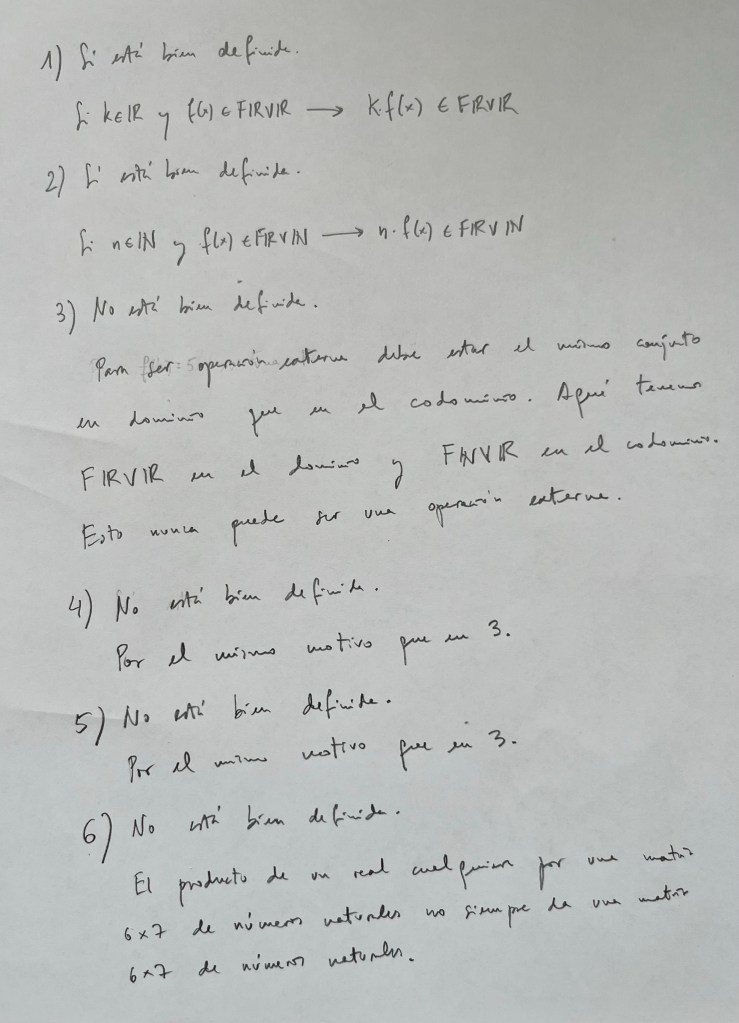 1) Si está bien definida.
Si k∈IR y f(x) ∈ FIRVIR → K·f(x) ∈ FIRVIR
2) Si está bien definida.
Si n∈IN y f(x) ∈ FIRVIN → n·f(x) ∈ FIRVIN
3) No está bien definida.
Para ser operación externa debe estar el mismo conjunto
en dominio que en el codominio. Aquí tenemos
FIRVIR en el dominio y FINVIR en el codominio.
Esto nunca puede ser una operación externa.
4) No está bien definida.
Por el mismo motivo que en 3.
5) No está bien definida.
Por el mismo motivo que en 3.
6) No está bien definida.
El producto de un real cualquiera por una matriz
6x7 de números naturales no siempre da una matriz
6x7 de números naturales.